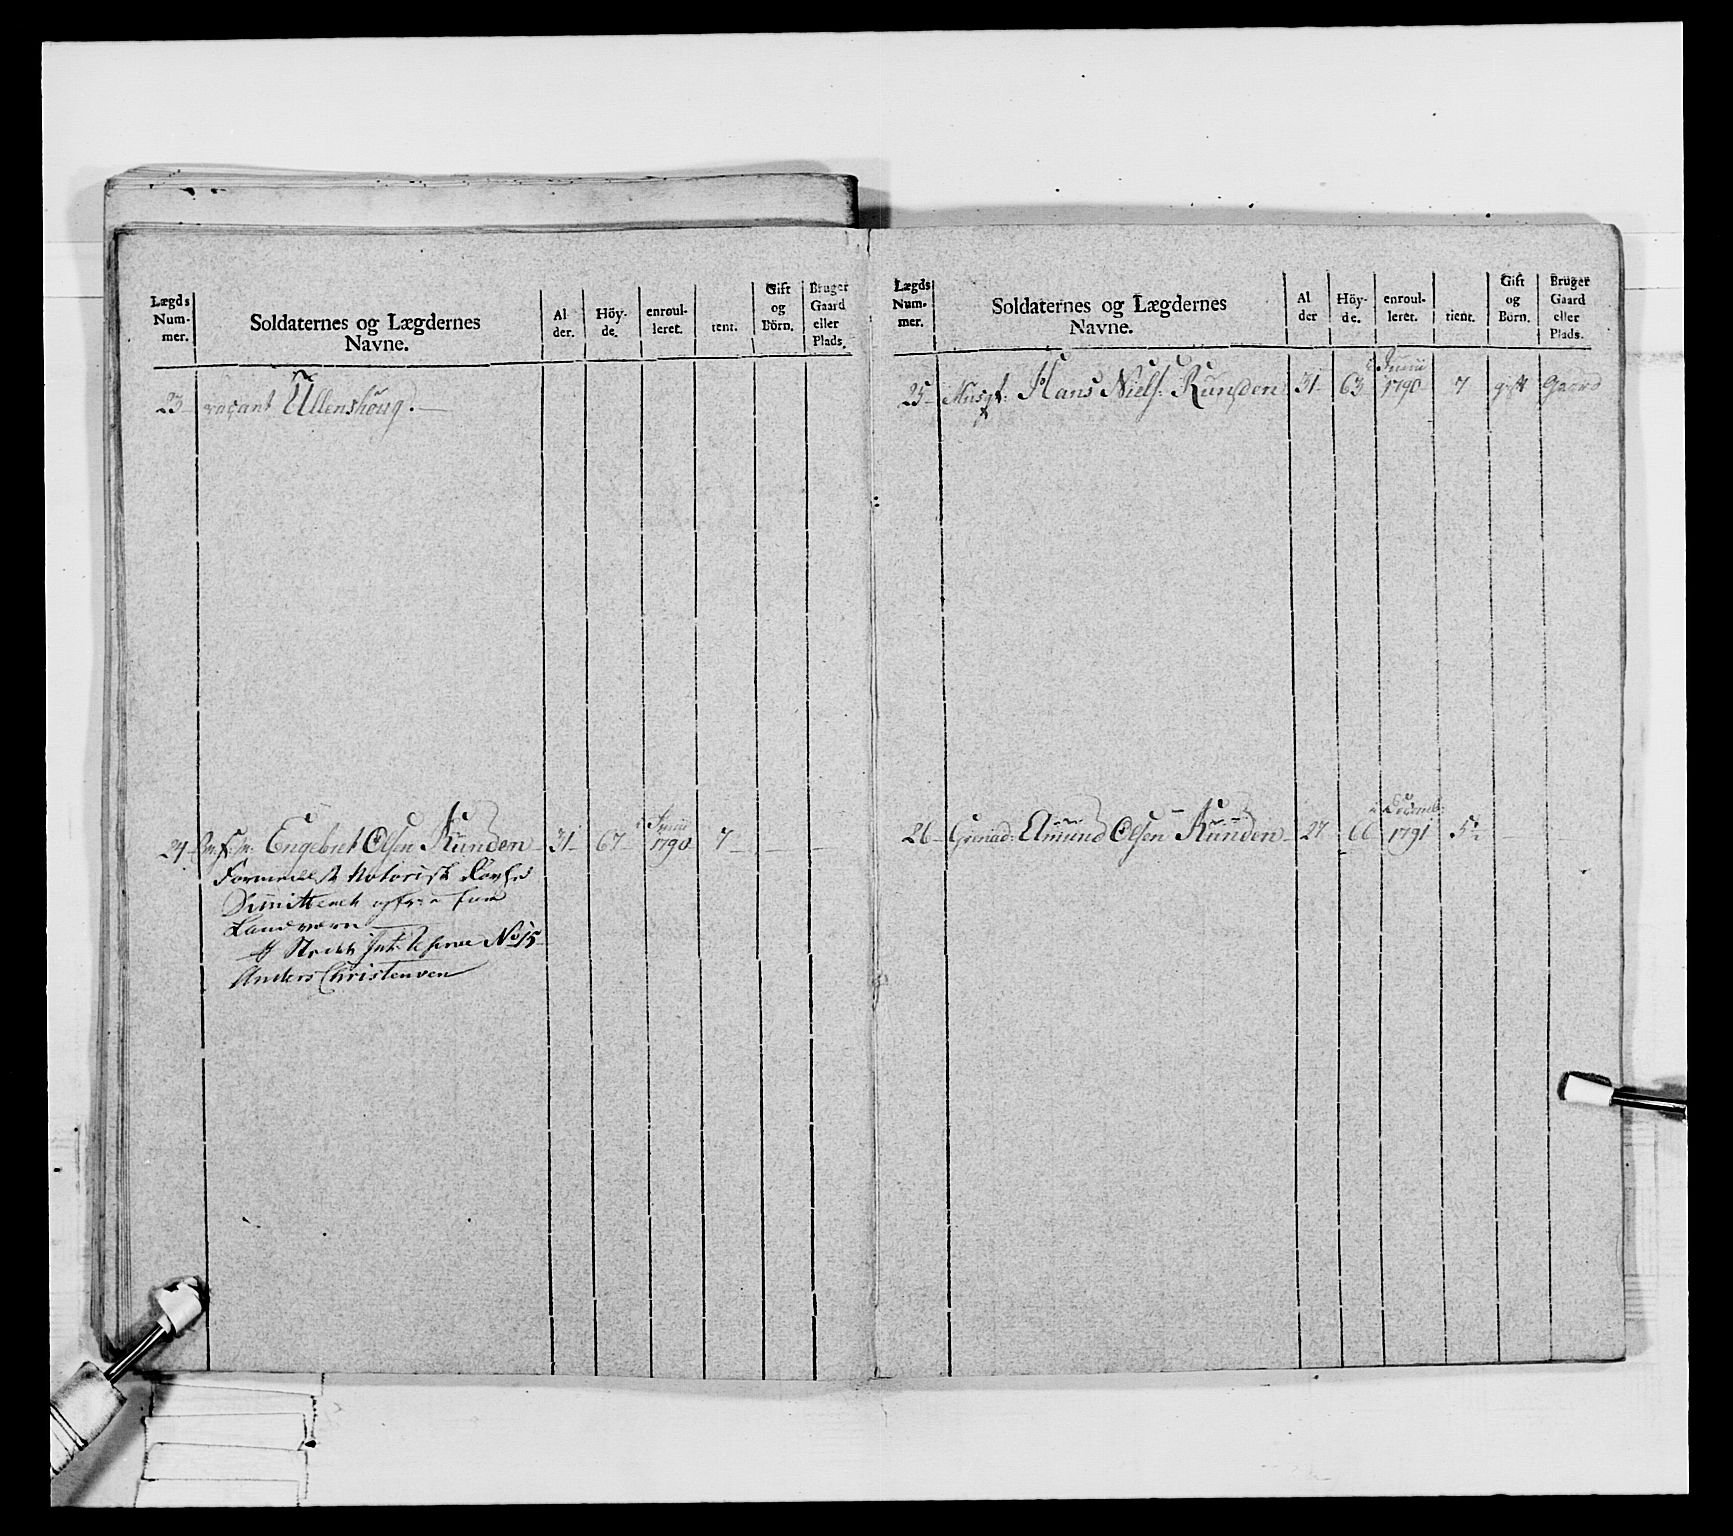 Lægds
Num-
mer.
Soldaternes og Lægdernes
Navne.
Al
der.
Höy-
de.
enroul-
leret.
tient.
Gift
og
Börn.
Bruger
Gaard
eller
Plads.
23 vacant Ullenshoug.
24 Engebret Olsen Runden 31 67 Junii 1790 7
Formedelst Notorisk
Dimitteret
Landværn
No 15
Anders Christensen
Lægds
Num-
mer.
Soldaternes og Lægdernes
Navne.
Al
der
Höy-
de.
enroul-
leret.
tient.
Gift
og
Born.
Bruger
Gaard
eller
Plads.
25 Musqt: Hans Niels: Runden 31 63 Junii 1790 7 gift Gaard
26 Grenad: Amund Olsen Runden 27 66 1791 5½